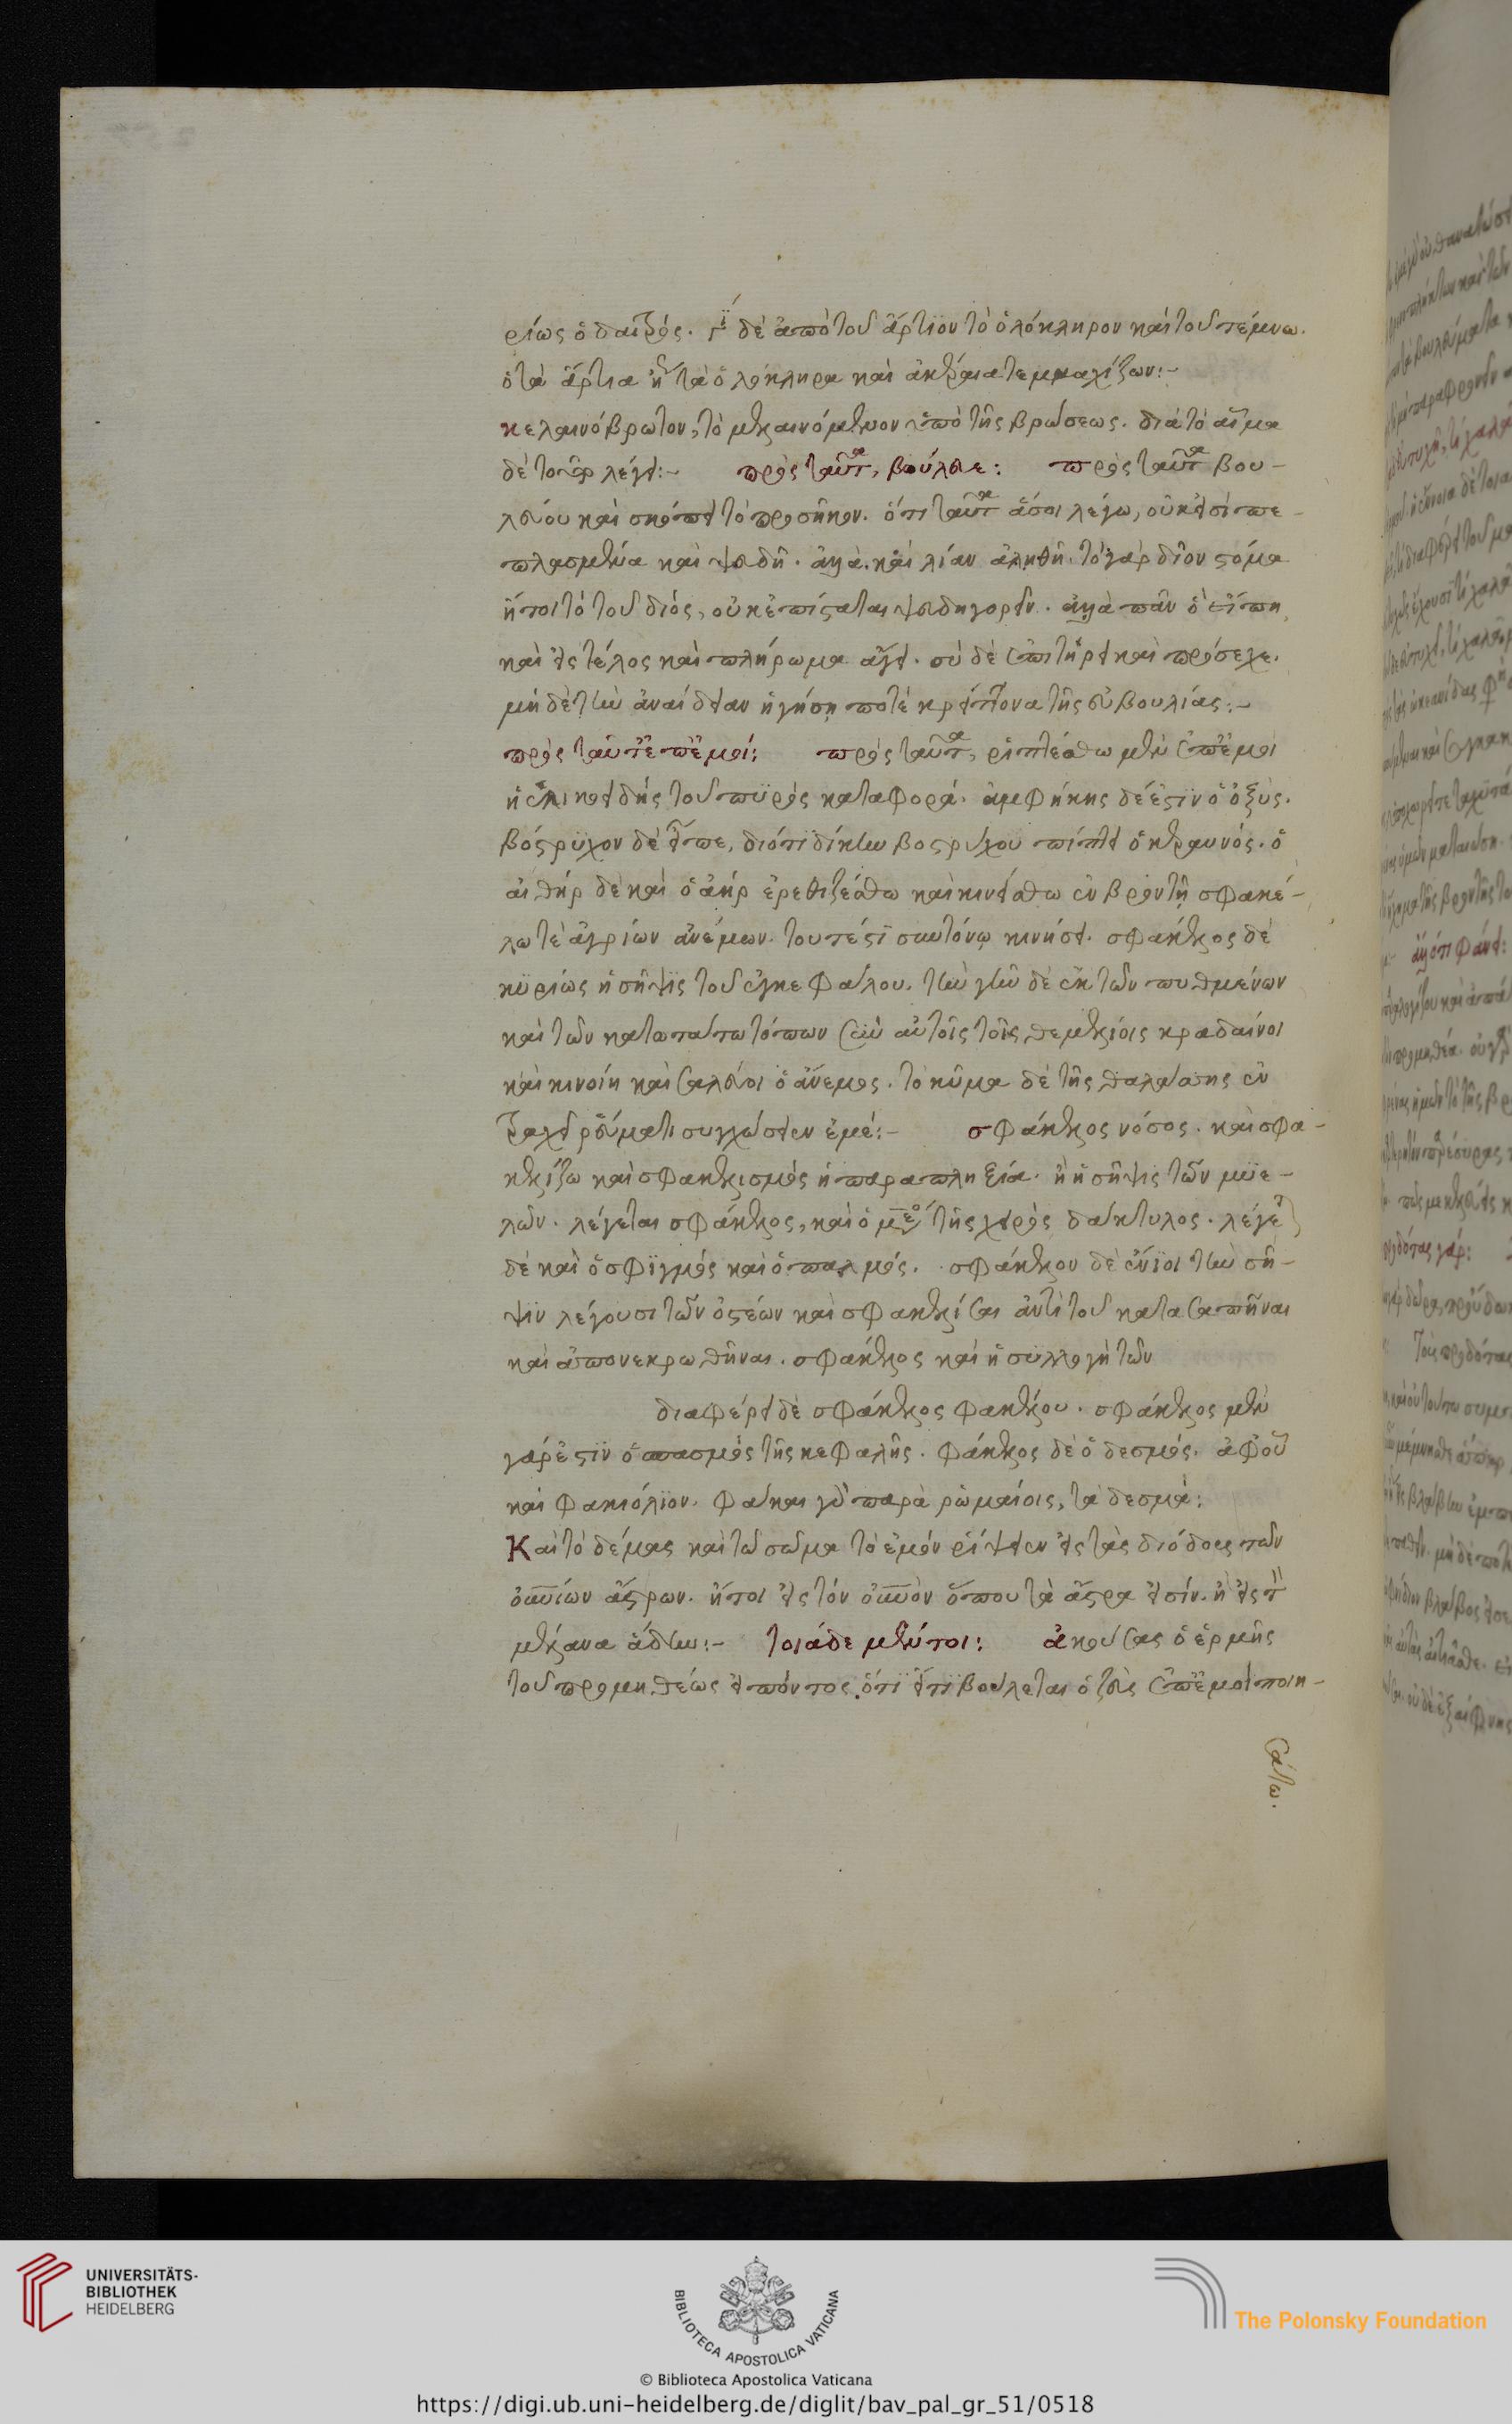 ρίως ὁ δαιτρός. δὲ ἀπὸ τοῦ ἄρτιον τὸ ὁλόκληρον καὶ τοῦ τέμνω.
ὁ τὰ ἄρτια ἤτοι τὰ ὁλόκληρα καὶ ἀκέραια τεμμαχίζων:-
κελαινόβρωτον, τὸ μελαινόμενον ὑπὸ τῆς βρώσεως. διὰ τὸ αἷμα
δὲ τοῦτο λέγει:- πρὸς ταῦτα, βούλευε: πρὸς ταῦτα βου-
λεύου καὶ σκόπει τὸ προσῆκον. ὅτι ταῦτα ἅ σοι λέγω, οὐκ εἰσὶ πε-
πλασμένα καὶ ψευδῆ. ἀλλὰ καὶ λίαν ἀληθῆ. τὸ γὰρ δῖον στόμα
ἤτοι τὸ τοῦ διός, οὐκ ἐπίσταται ψευδηγορεῖν. ἀλλὰ πᾶν ὃ εἴπῃ
καὶ εἰς τέλος καὶ πλήρωμα ἄγει. σὺ δὲ ἐπιτήρει καὶ πρόσεχε.
μὴ δὲ τὴν ἀναίδειαν ἡγήσῃ ποτὲ κρείττονα τῆς εὐβουλίας:-
πρὸς ταῦτ' ἐπ' ἐμοί: πρὸς ταῦτα, ῥιπτέσθω μὲν ἐπ' ἐμοὶ
ἡ ἑλικοειδὴς τοῦ πυρὸς καταφορά. ἀμφήκης δέ ἐστιν ὁ ὀξύς.
βόστρυχον δὲ εἶπε, διότι δίκην βοστρύχου πίπτει ὁ κεραυνός. ὁ
αἰθὴρ δὲ καὶ ὁ ἀὴρ ἐρεθιζέσθω καὶ κινείσθω ἐν βροντῇ σφακέ-
λῳ τὲ ἀγρίων ἀνέμων. τουτέστι συντόνῳ κινήσει. σφάκελος δὲ
κυρίως ἡ σῆψις τοῦ ἐγκεφάλου. τὴν γῆν δὲ ἐκ τῶν πυθμένων
καὶ τῶν κατωτάτω τόπων σὺν αὐτοῖς τοῖς θεμελίοις κραδαίνοι
καὶ κινοίη καὶ σαλεύοι ὁ ἄνεμος. τὸ κῦμα δὲ τῆς θαλάσσης ἐν
τραχεῖ ῥεύματι συγχώσειεν ἐμέ:- σφάκελος νόσος. καὶ σφα-
κελίζω καὶ σφακελισμός ἡ παραπληξία. ἢ ἡ σῆψις τῶν μυε-
λῶν. λέγεται σφάκελος, καὶ ὁ μέσος τῆς χειρὸς δάκτυλος. λέγεται
δὲ καὶ ὁ σφιγμός καὶ ὁ παλμός. σφάκελον δὲ ἔνιοι τὴν σῆ-
ψιν λέγουσι τῶν ὀστέων καὶ σφακελίσαι ἀντὶ τοῦ κατασαπῆναι
καὶ ἀπονεκρωθῆναι. σφάκελος καὶ ἡ συλλογὴ τῶν
διαφέρει δὲ σφάκελος φακέλου. σφάκελος μὲν
γάρ ἐστιν ὁ σπασμὸς τῆς κεφαλῆς. φάκελος δὲ ὁ δεσμός. ἀφ' οὗ
καὶ φακιόλιον. φάκαι γὰρ παρὰ ῥωμαίοις, τὰ δεσμά:
Καὶ τὸ δέμας καὶ τὸ σῶμα τὸ ἐμὸν ῥίψειεν εἰς τὰς διόδους τῶν
οὐνίων ἄστρων. ἤτοι εἰς τὸν οὐνὸν ὅπου τὰ ἄστρα εἰσίν. ἢ εἰς τὸν
μέλανα ἅδην:- τοιάδε μέντοι: ἀκούσας ὁ ἑρμῆς
τοῦ προμηθέως εἰπόντος ὅτι εἴ τι βούλεται ὁ ζεὺς ἐπ' ἐμοὶ ποιη-
σάτω.
UNIVERSITÄTS-
BIBLIOTHEK
HEIDELBERG
BIBLIOTECA APOSTOLICA VATICANA
The Polonsky Foundation
© Biblioteca Apostolica Vaticana
https://digi.ub.uni-heidelberg.de/diglit/bav_pal_gr_51/0518